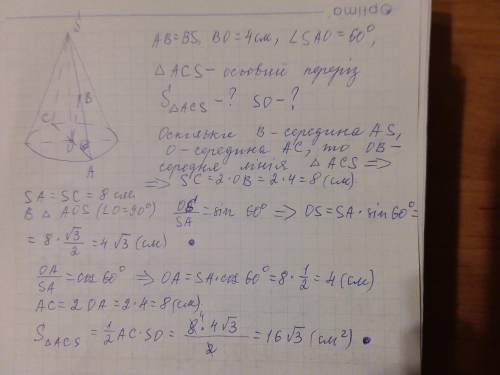 Optima
S
B
C
O
A
AB=BS, BO=4см, ∠SAO=60°,
△ACS – осьовий переріз
S△ACS – ? SO – ?
Оскільки B – середина AS,
O – середина AC, то OB –
середня лінія △ACS ⟹
⟹ SC = 2·OB = 2·4 = 8(см).
SA = SC = 8 см.
В △AOS (∠O=90°) OS/SA = sin 60° ⟹ OS = SA·sin 60° =
= 8·√3/2 = 4√3 (см)
OA/SA = cos 60° ⟹ OA = SA·cos 60° = 8·1/2 = 4(см)
AC = 2OA = 2·4 = 8(см)
S△ACS = 1/2 AC·SO = 8·4√3/2 = 16√3 (см²)